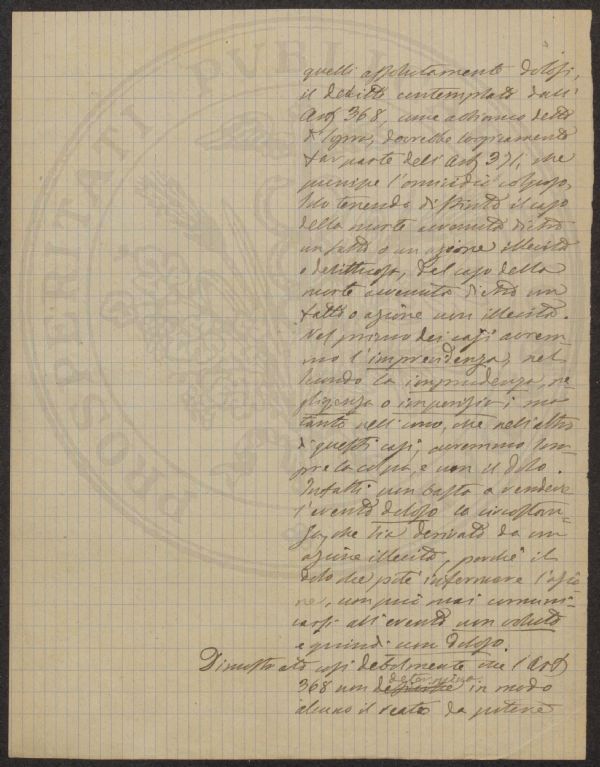 PROSPERITATI PVBL
quelli assolutamente dolosi,
il delitto contemplato dall'
Art 368, come abbiamo detto
di sopra, dovrebbe logicamente
far parte dell'Art 371, che
punisce l'omicidio colposo,
solo tenendo distinto il caso
della morte avvenuta dietro
un fatto o un azione illecita
o delittuosa, del caso della
morte avvenuta dietro un
fatto o azione non illecito.
Nel primo dei casi avrem-
mo l'imprevidenza, nel
secondo la imprudenza, ne-
gligenza o imperizia; ma
tanto nell'uno, che nell'altro
di questi casi, avremmo sem-
pre la colpa, e non il dolo.
Infatti non basta a rendere
l'evento doloso la circostan-
za, che sia derivato da un
azione illecita, perché il
dolo che poté informare l'azio-
ne, non può mai comuni-
carsi all'evento non voluto
e quindi non doloso.
Dimostrato così debolmente che l'Art
determina
368 non in modo
alcuno il reato da potere